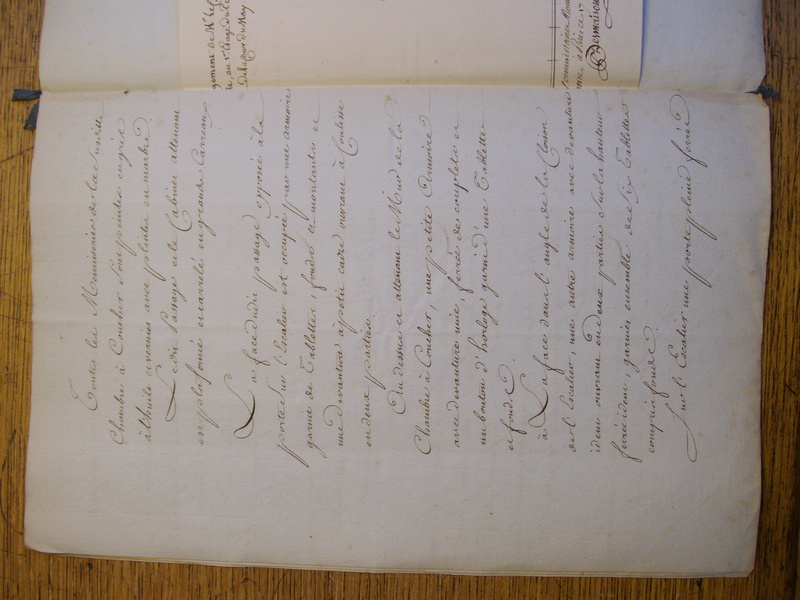 Toutes les Menuiseries de la susditte
Chambre à Coucher sont peintes en gris
à l'huile vernies avec plinte en marbre
Ledit Passage et le Cabinet attenant
est plafonné et carrelé en grands Carreaux
La face dudit passage opposée à la
porte sur l'Escalier est occupée par une armoire
garnie de Tablettes, fonds et montants et
une devanture à petit cadre ouvrant à Coulisse
en deux parties
Au dessus et attenant le Mur de la
Chambre à Coucher, une petite Armoire
avec devanture unie, ferrée de complets et
un bouton d'horloge garnie d'une Tablette
et fond
à La face dans l'angle de la Cloison
de l'Escalier, une autre armoire avec devanture
idem ouvrant en deux parties sur la hauteur
ferrée idem, garnies ensemble de Six Tablettes
compris fond
Sur l'Escalier une porte pleine ferrée
gement de Mr